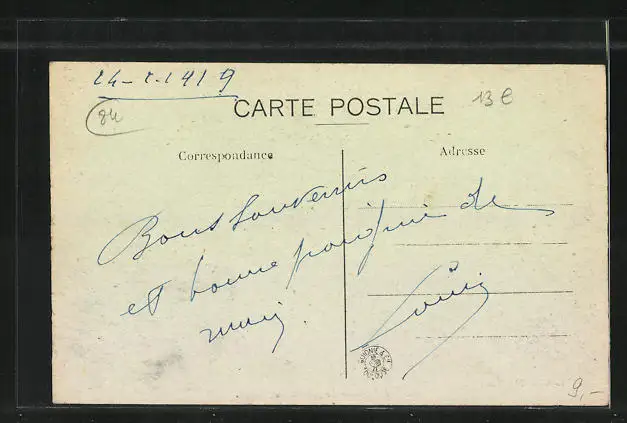 24-2-1919
84
CARTE POSTALE
13€
Correspondance
Adresse
Bons Souvenirs
et bonne poignée de
main.
Louis
9,-